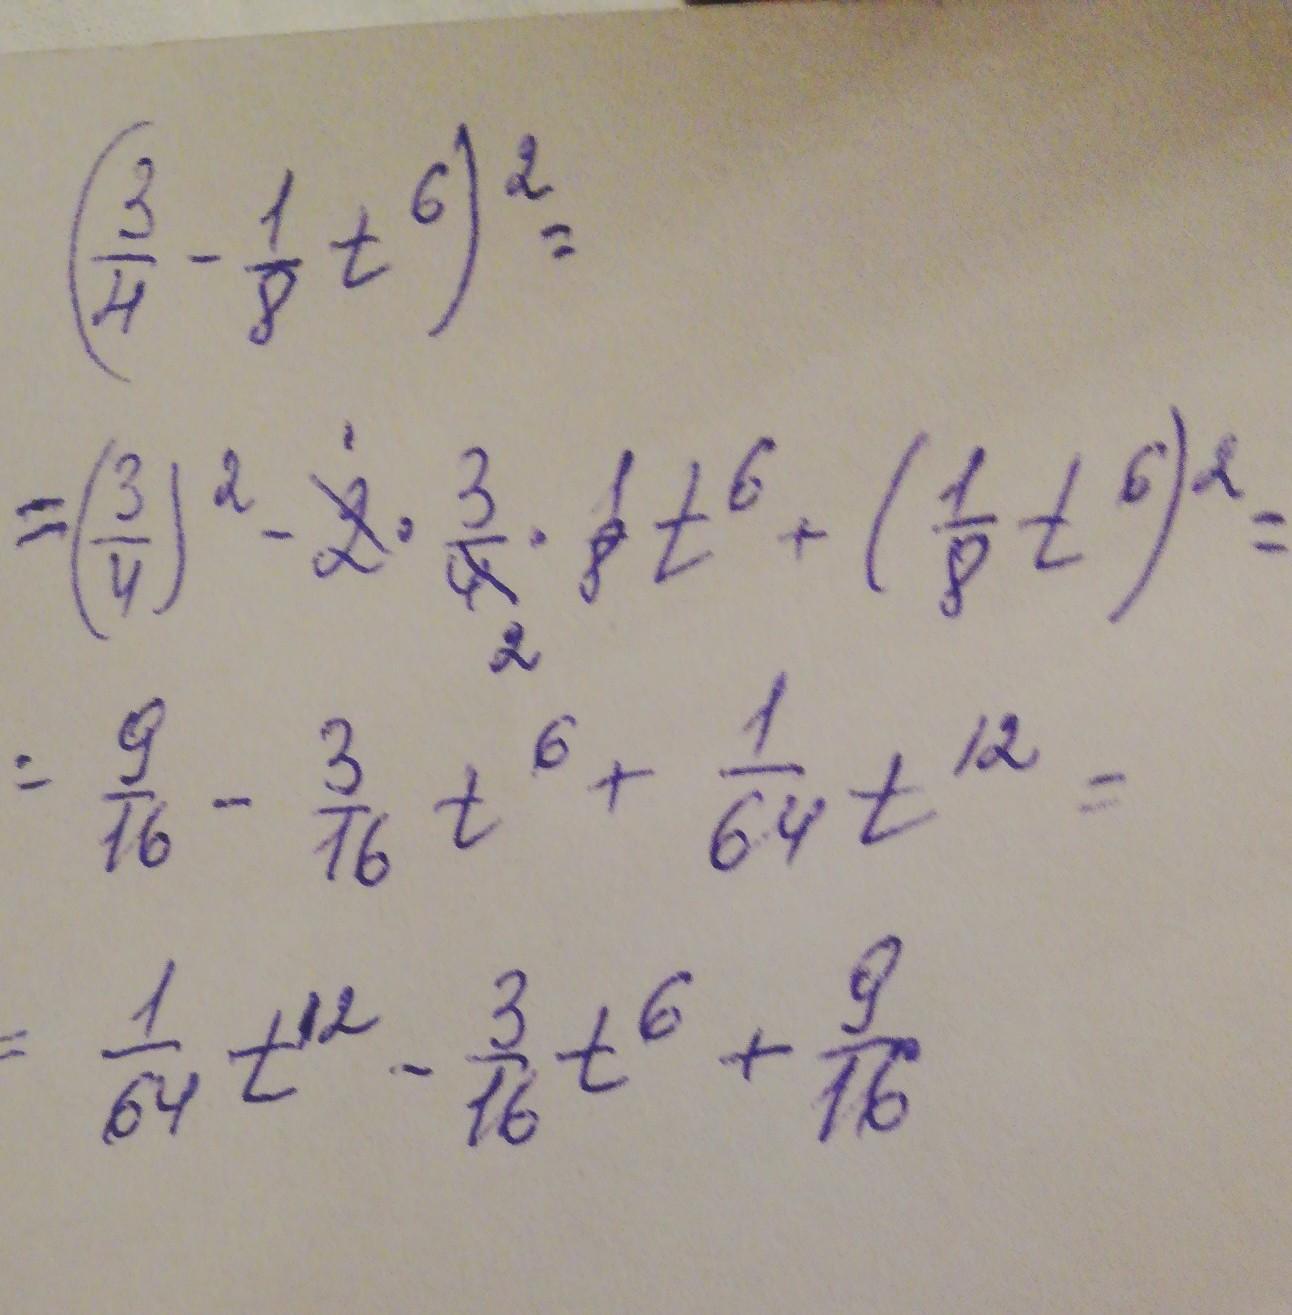 (3/4 - 1/8 t^6)^2 =
= (3/4)^2 - 2̸^1 · 3/4̸_2 · 1/8 t^6 + (1/8 t^6)^2 =
= 9/16 - 3/16 t^6 + 1/64 t^12 =
= 1/64 t^12 - 3/16 t^6 + 9/16